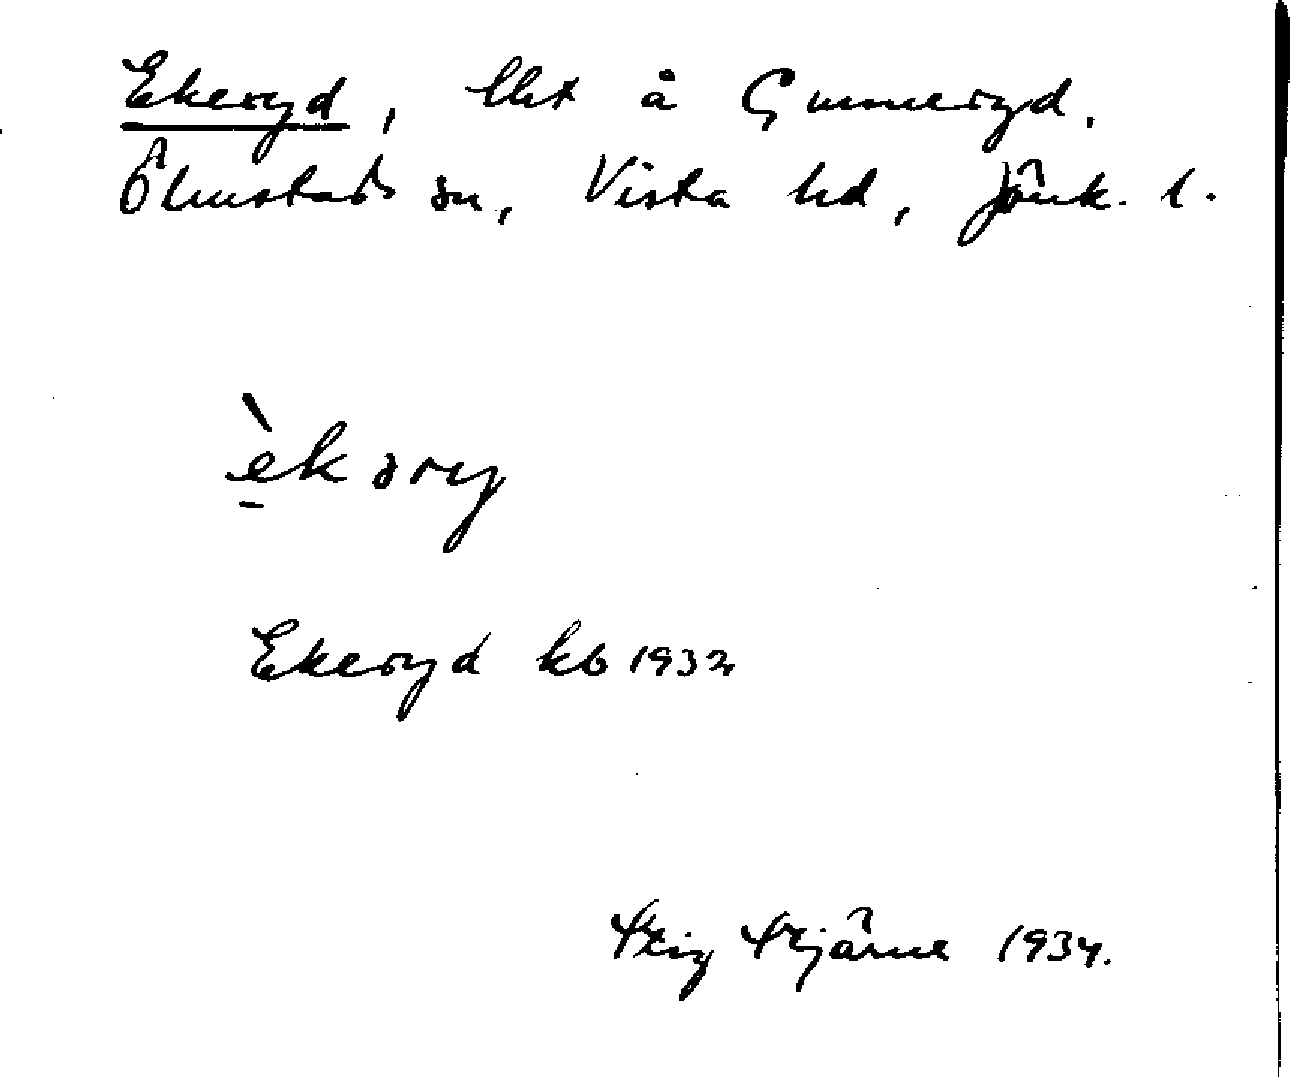 Ekeryd, lht å Gunneryd.
Ölmstads sn, Vista hd, Jönk. l.
èkəry
Ekeryd kb 1932
Stig Stjärne 1934.